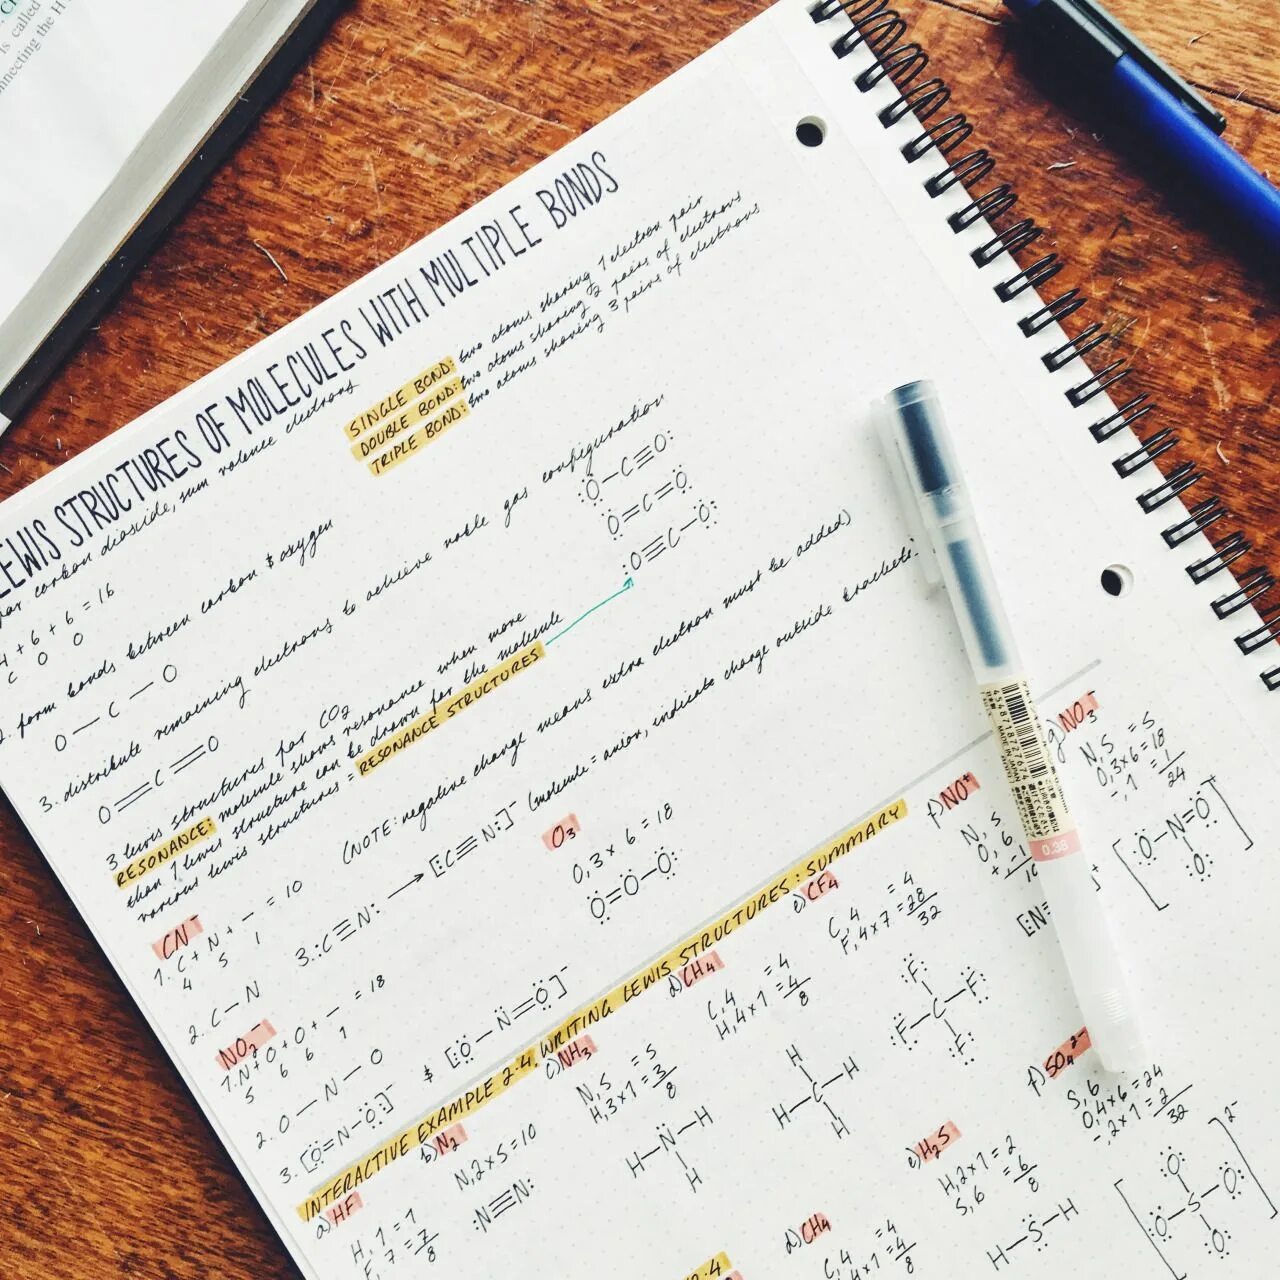 LEWIS STRUCTURES OF MOLECULES WITH MULTIPLE BONDS
for carbon dioxide, sum valence electrons
4 + 6 + 6 = 16
C O O
2. form bonds between carbon & oxygen
O — C — O
3. distribute remaining electrons to achieve noble gas configuration
O=C=O
SINGLE BOND: two atoms sharing 1 electron pair
DOUBLE BOND: two atoms sharing 2 pairs of electrons
TRIPLE BOND: two atoms sharing 3 pairs of electrons
:Ö—C≡O:
Ö=C=Ö
:O≡C—Ö:
3 lewis structures for CO₂
RESONANCE: molecule shows resonance when more
than 1 lewis structure can be drawn for the molecule
various lewis structures = RESONANCE STRUCTURES
(NOTE: negative charge means extra electron must be added)
CN⁻
1. C + N + - = 10
4 5 1
2. C—N
3. :C≡N: → [:C≡N:]⁻ (molecule = anion, indicate charge outside brackets)
NO₂⁻
1. N + O + O + - = 18
5 6 6 1
2. O — N — O
3. [Ö=N—Ö:]⁻ & [:Ö—N=Ö]⁻
O₃
O, 3 × 6 = 18
Ö=O—Ö:
INTERACTIVE EXAMPLE 2.4. WRITING LEWIS STRUCTURES: SUMMARY
a) HF
H, 1 = 1
F, 7 = 7
8
b) N₂
N, 2×5=10
:N≡N:
c) NH₃
N, 5 = 5
H, 3×1 = 3
8
H—N—H
H
d) CH₄
C, 4 = 4
H, 4×1 = 4
8
H
H—C—H
H
e) CF₄
C, 4 = 4
F, 4×7 = 28
32
:F:
:F—C—F:
:F:
f) NO⁺
N, 5
O, 6
+, -1
10
[:N≡
g) NO₃⁻
N, 5 = 5
O, 3×6 = 18
-, 1 = 1
24
[:Ö—N=Ö]⁻
:O:
d) CH₄
C, 4 = 4
4×1 = 4
8
e) H₂S
H, 2×1 = 2
S, 6 = 6
8
H—S—H
f) SO₄²⁻
S, 6
O, 4×6 = 24
-, 2×1 = 2
32
[:O:
:O—S—O:
:O:]²⁻
2.4
is called
connecting the H
4548718727674
MADE IN JAPAN
0.38